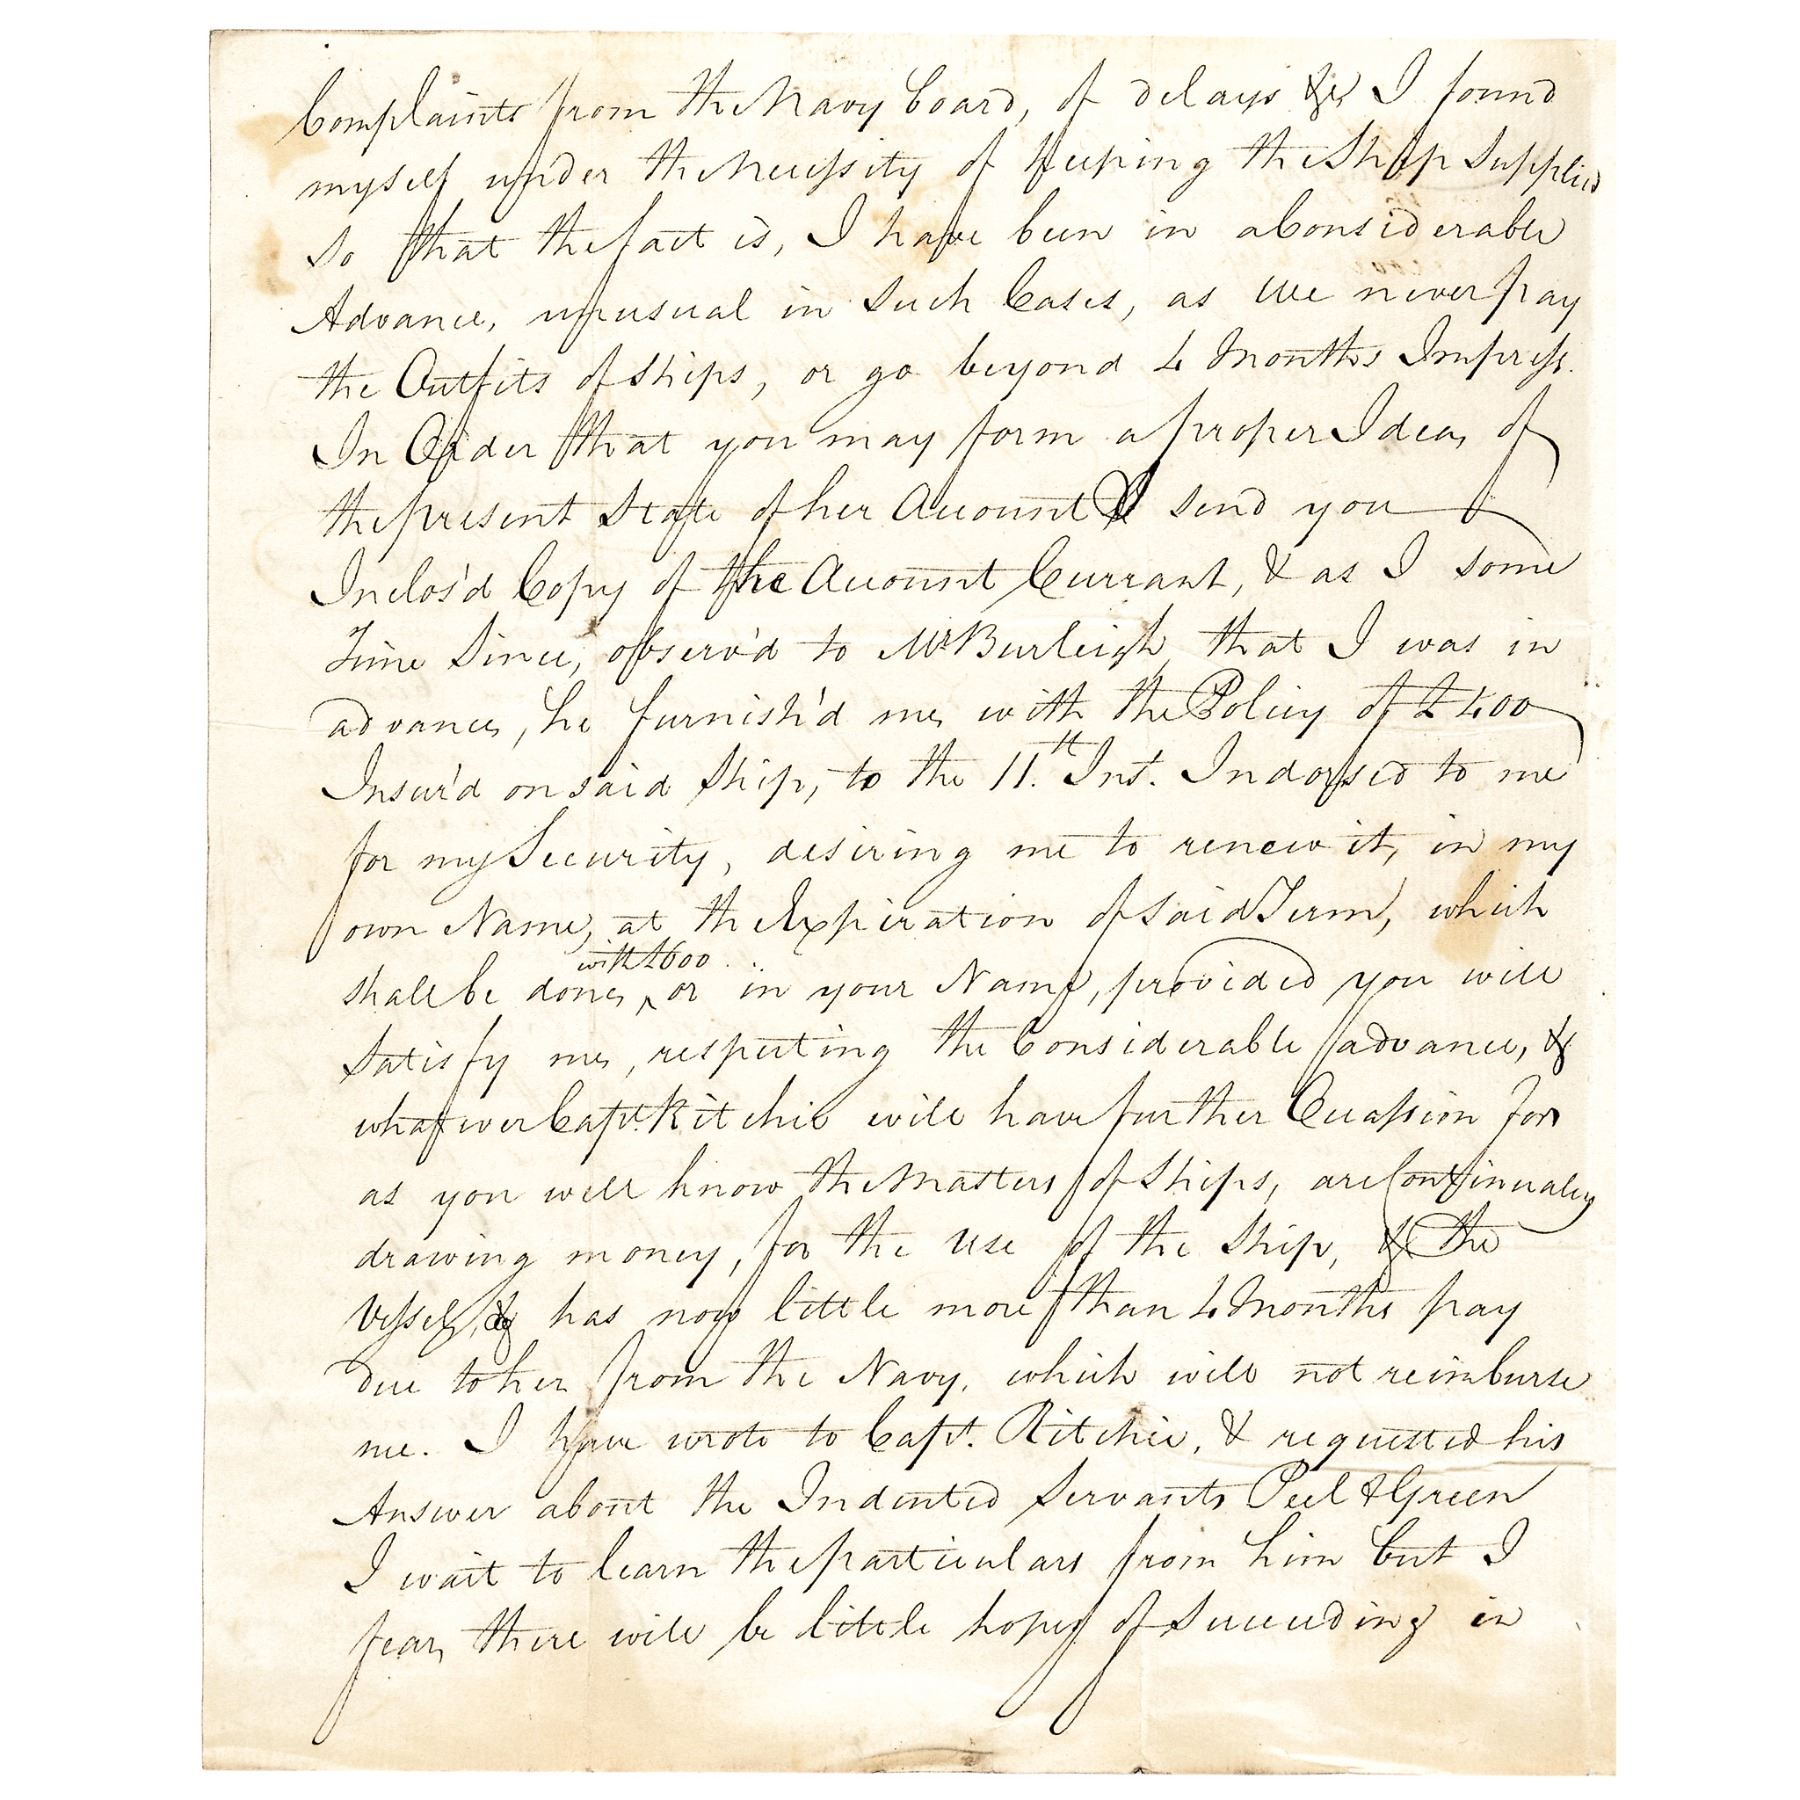 Complaints from the Navy Board, of delays &c, I found
myself under the Necessity of keeping the Ship Supplied
so that the fact is, I have been in a Considerable
Advance, unusual in such Cases, as we never pay
the Outfits of Ships, or go beyond 4 Months Impress.
In Order that you may form a proper Idea, of
the present State of her Account I send you
Inclos'd Copy of the Account Currant, & as I some
Time Since, observ'd to Mr Burleigh, that I was in
advance, he furnish'd me, with the Policy of £400
Insur'd on said Ship, to the 11.th Inst. Indorsed to me
for my Security, desiring me to renew it, in my
own Name, at the Expiration of said Term, which
with £600
shall be done, ‸ or in your Name, provided you will
Satisfy me, respecting the Considerable advance, &
whatever Capt. Ritchie will have further Occassion for
as you well know the Masters of Ships, are Continualy
drawing money, for the Use of the Ship, & the
Vessel, has now little more than 4 Months pay
due to her from the Navy, which will not reimburse
me. I have wrote to Capt. Ritchie, & requested his
Answer about the Indented Servants Peel & Green
I wait to learn the particulars from him but I
fear, there will be little hopes of Succeeding in